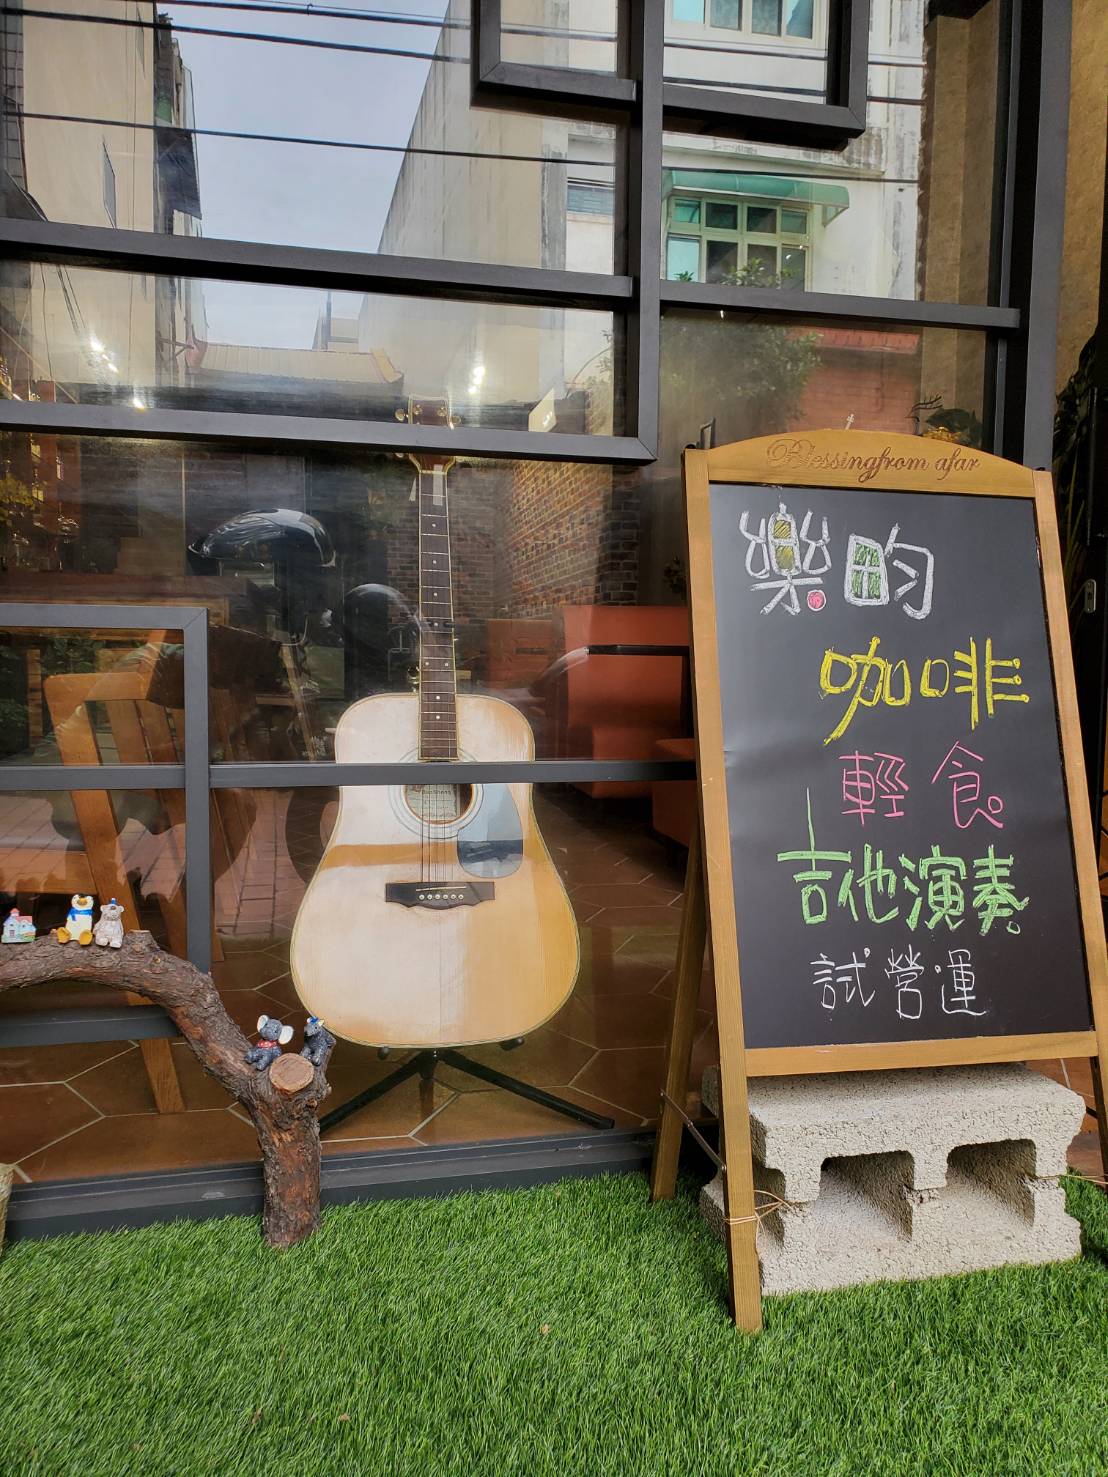 Blessingfrom afar
樂畇
咖啡
輕食
吉他演奏
試營運